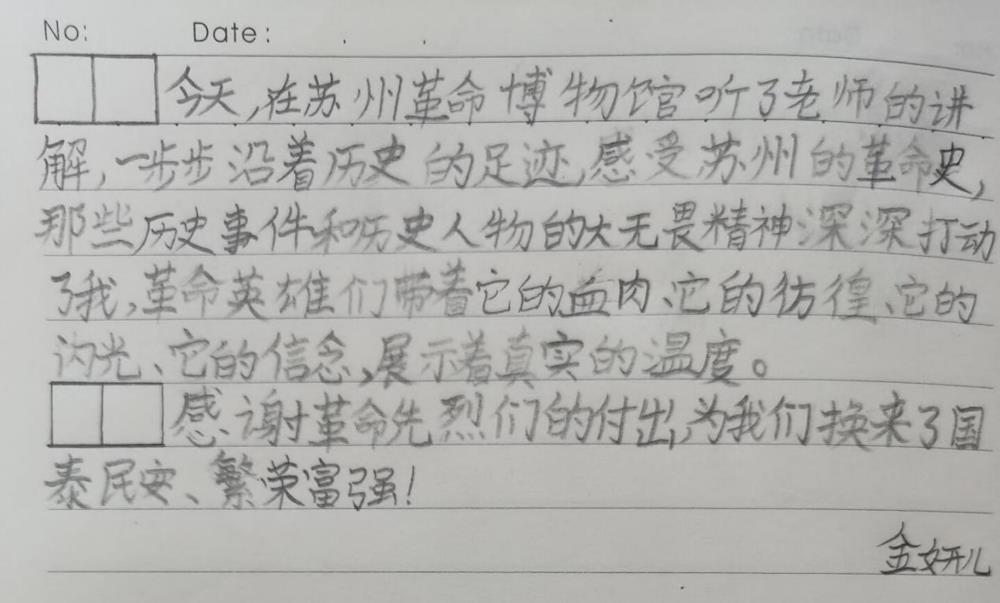 No: Date:
今天,在苏州革命博物馆听了老师的讲
解,一步步沿着历史的足迹,感受苏州的革命史,
那些历史事件和历史人物的大无畏精神深深打动
了我,革命英雄们带着它的血肉、它的彷徨、它的
闪光、它的信念,展示着真实的温度。
感谢革命先烈们的付出,为我们换来了国
泰民安、繁荣富强!
金妍儿